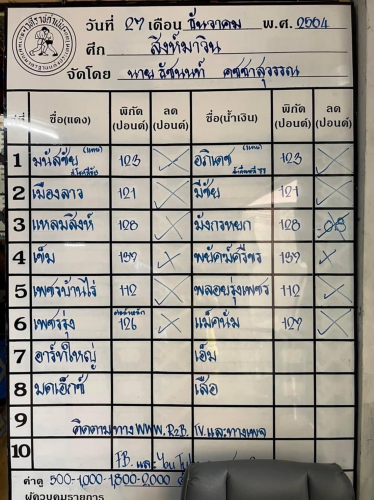 วันที่ 27 เดือน ธันวาคม พ.ศ. 2564
ศึก สิงห์มาวิน
จัดโดย นาย ธัชนนท์ คชชาสุวรรณ
ที่ ชื่อ(แดง) พิกัด (ปอนด์) ลด (ปอนด์) ชื่อ(น้ำเงิน) พิกัด (ปอนด์) ลด (ปอนด์)
1 มนัสชัย (แทน) 123 อภิเดช (แทน) 123
2 เมืองลาว 121 มีชัย 121
3 แหลมสิงห์ 128 มังกรหยก 128 -0.8
4 เข้ม 132 พยัคฆ์ศรีชร 132
5 เพชรบ้านไร่ 112 พลอยรุ่งเพชร 112
6 เพชรรุ่ง 126 แม็คนั่ม 127
7 อาร์ทใหญ่ เอ็ม
8 มดเอ็กซ์ เสือ
9 ติดตามทาง WWW. R2B. TV. และทางเพจ
10 FB. และ
ค่าดู 500-1,000-1,500-2,000
ผู้ควบคุมรายการ